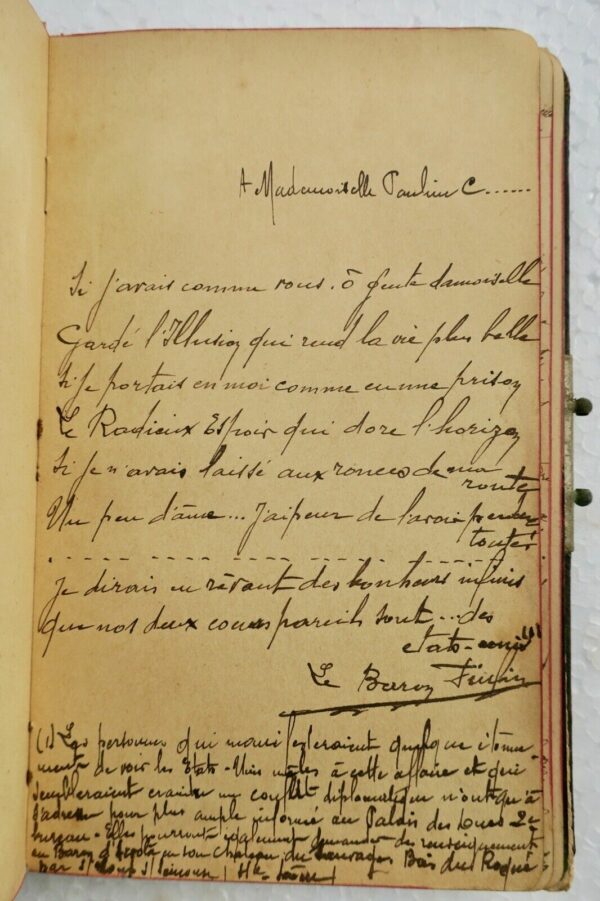 A Mademoiselle Pauline C......
Si j'avais comme vous. ô gente damoiselle
Gardé l'Illusion qui rend la vie plus belle
Si je portais en moi comme en une prison
Le Radieux Espoir qui dore l'horizon
Si je n'avais laissé aux ronces de ma
route
Un peu d'âme... J'ai peur de l'avoir perdue
toute!
Je dirais en rêvant des bonheurs infinis
que nos deux coeurs pareils sont... des
etats-unis (1)
Le Baron
(1) Les personnes qui manifesteraient quelque étonne
ment de voir les Etats-Unis mêlés à cette affaire et qui
sembleraient craindre un conflit diplomatique n'ont qu'à
s'adresser pour plus ample informé au Palais des
bureau - Elles pourront également demander des renseignements
au Baron en son chateau du Bois du
par